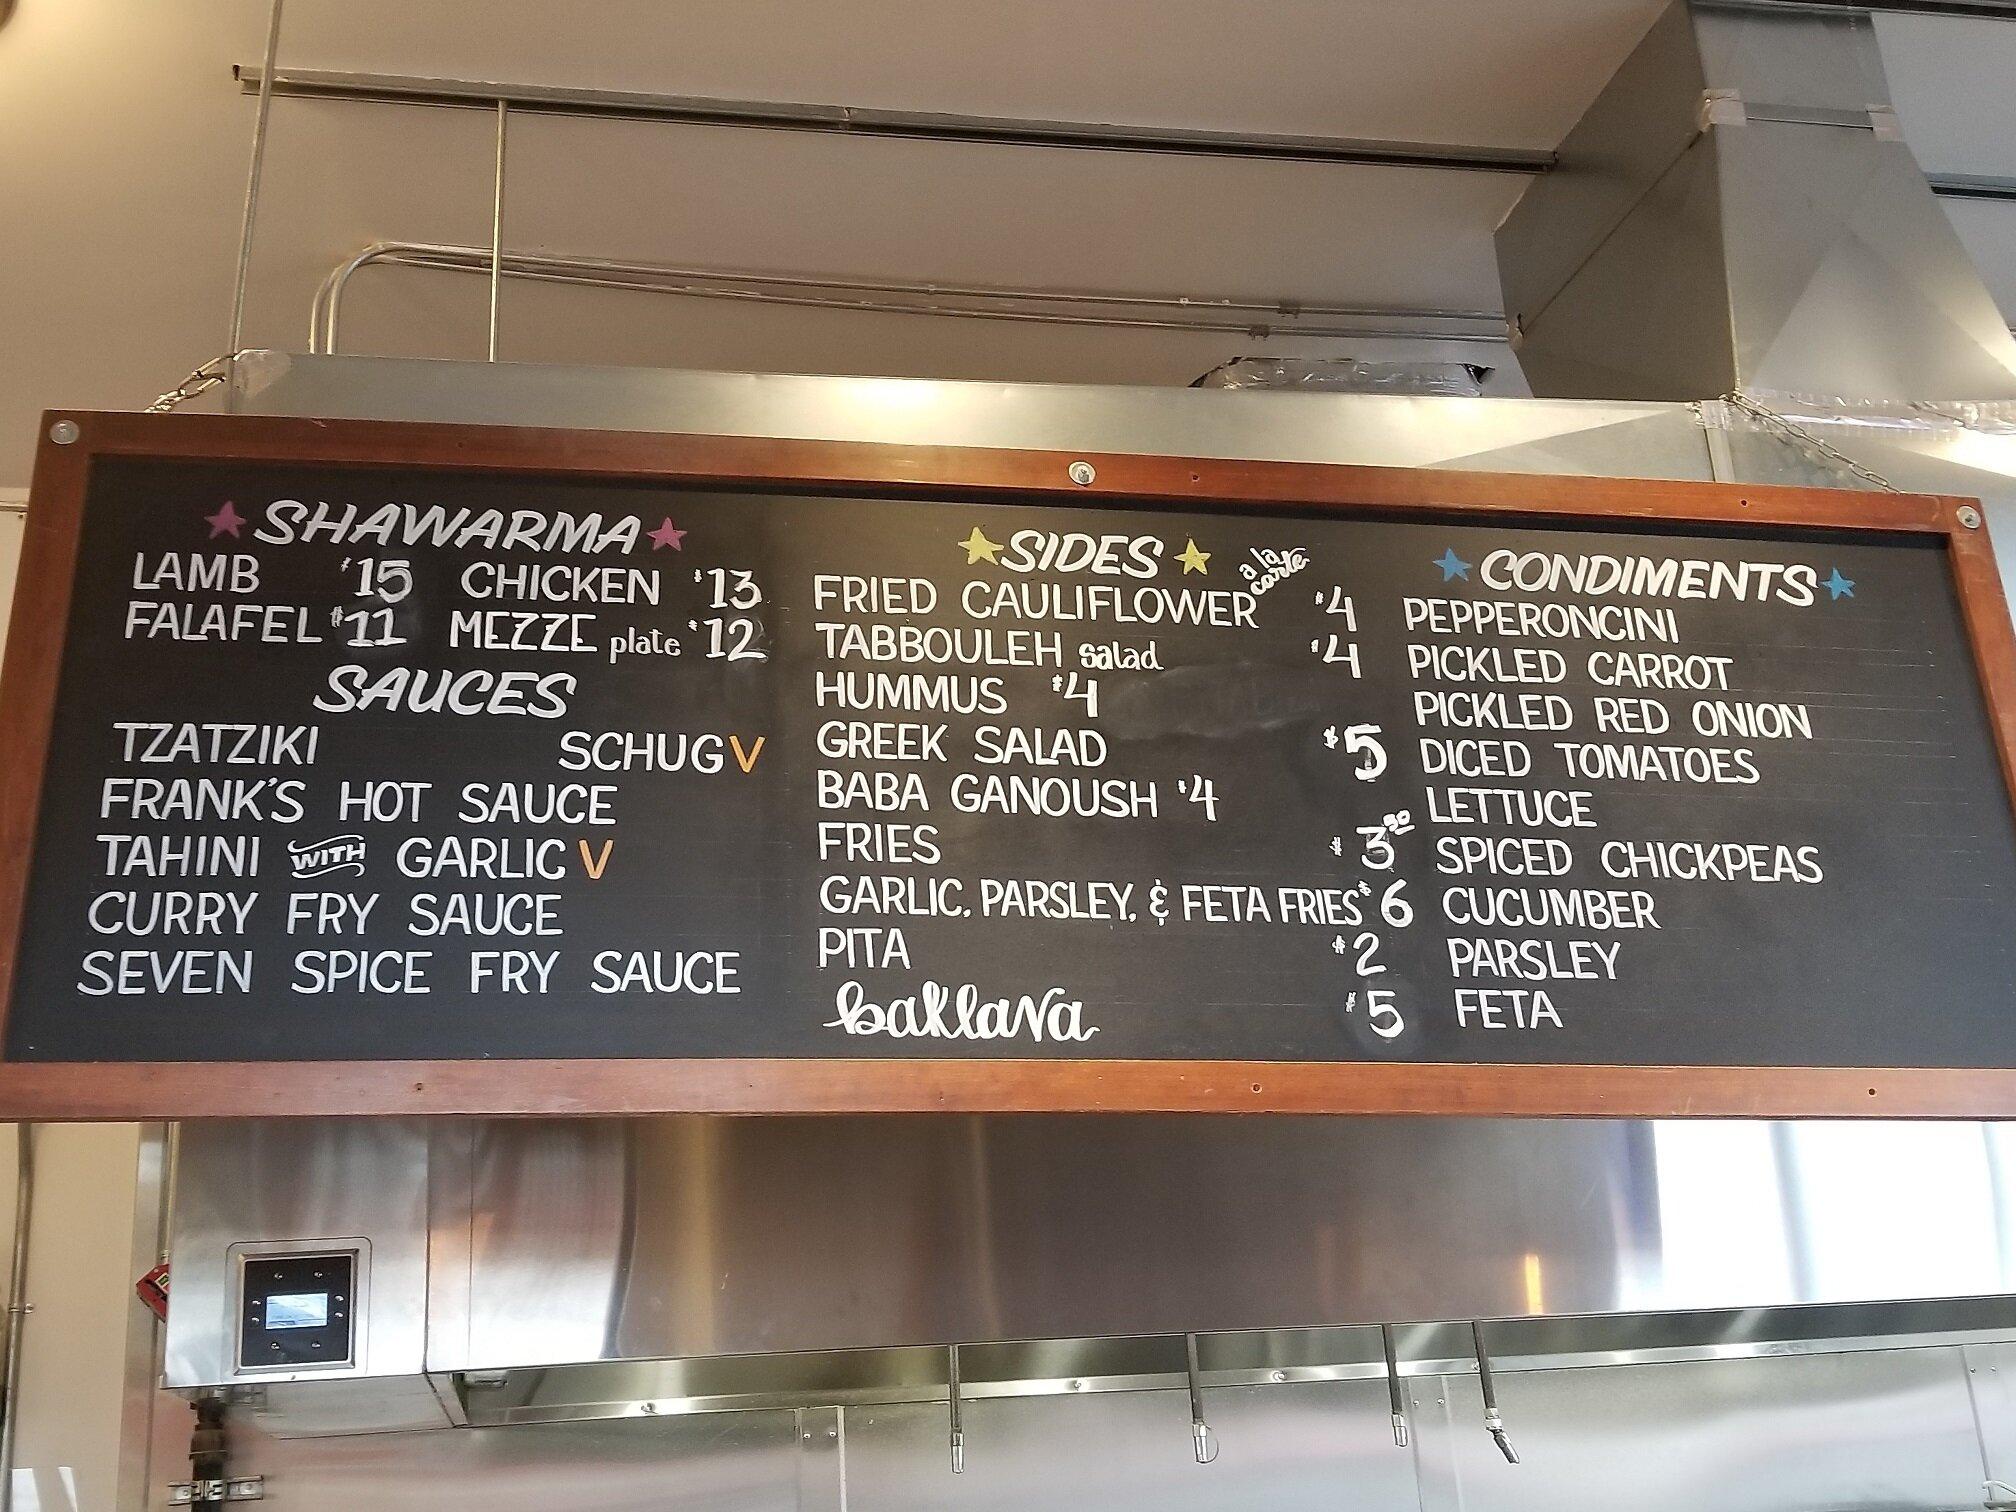 SHAWARMA
LAMB $15 CHICKEN $13
FALAFEL $11 MEZZE plate $12
SAUCES
TZATZIKI SCHUG V
FRANK'S HOT SAUCE
TAHINI WITH GARLIC V
CURRY FRY SAUCE
SEVEN SPICE FRY SAUCE
SIDES
à la carte
FRIED CAULIFLOWER $4
TABBOULEH salad $4
HUMMUS $4
GREEK SALAD $5
BABA GANOUSH $4
FRIES $3.50
GARLIC, PARSLEY, & FETA FRIES $6
PITA $2
baklava $5
CONDIMENTS
PEPPERONCINI
PICKLED CARROT
PICKLED RED ONION
DICED TOMATOES
LETTUCE
SPICED CHICKPEAS
CUCUMBER
PARSLEY
FETA